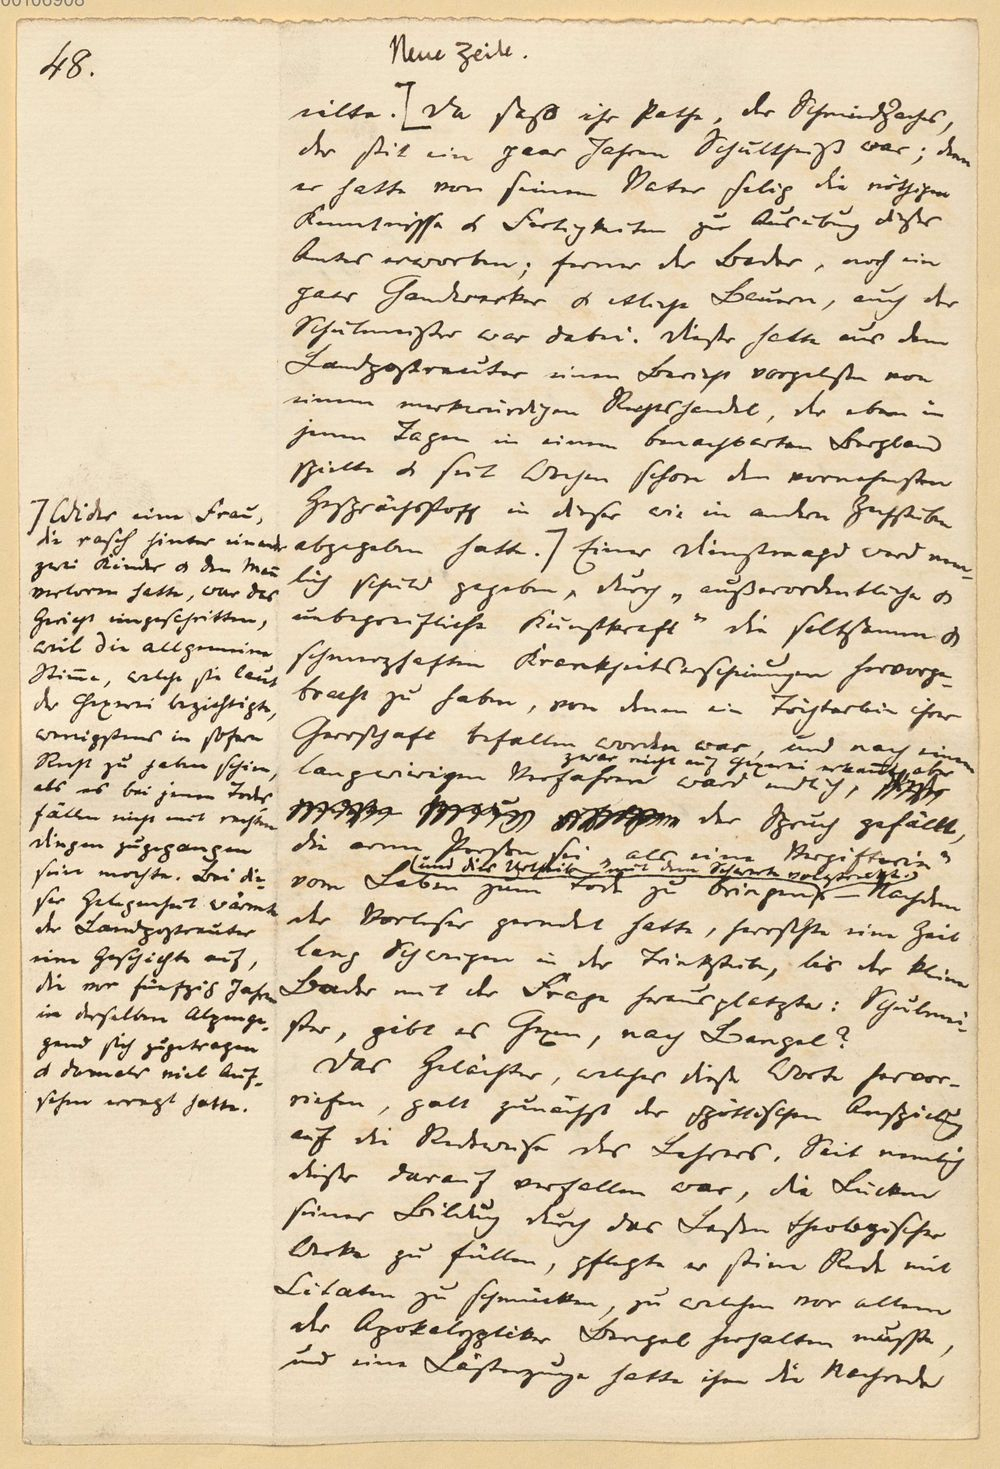 00106908
48.
Neue Zeile.
eilte. [Da saß ihr Pathe, der Schmiedjachs,
der seit ein paar Jahren Schultheiß war; denn
er hatte von seinem Vater selig die nöthigen
Kenntnisse & Fertigkeiten zur Ausübung dieses
Amtes erworben; ferner der Bader, noch ein
paar Handwerker & etliche Bauern, auch der
Schulmeister war dabei. Dieser hatte aus dem
Landpostreuter einen Bericht vorgelesen von
einem merkwürdigen Rechtshandel, der eben in
jenen Tagen in einem benachbarten Bergland
spielte & seit Wochen schon den vornehmsten
Gesprächsstoff in dieser wie in andern Zechstuben
abgegeben hatte.] Einer Dienstmagd ward nem-
lich schuld gegeben, durch „außerordentliche &
unbegreifliche Kunstkraft" die seltsamen &
schmerzhaften Krankheitserscheinungen hervorge-
bracht zu haben, von denen ein Töchterlein ihrer
Herrschaft befallen worden war, und nach einem
zwar nicht auf Hexerei erkannt, aber
langwierigen Verfahren ward endlich,
der Spruch gefällt,
die arme Person sei „als eine Vergifterin"
(und dies Urtheil mit dem Schwerte vollstreckt.)
vom Leben zum Tode zu bringen. — Nachdem
der Vorleser geendet hatte, herrschte eine Zeit
lang Schweigen in der Trinkstube, bis der kleine
Bader mit der Frage herausplatzte: Schulmei-
ster, gibt es Hexen, nach Bengel?
Das Gelächter, welches diese Worte hervor-
riefen, galt zunächst der spöttischen Anspielung
auf die Redeweise des Lehrers. Seit nemlich
dieser darauf verfallen war, die Lücken
seiner Bildung durch das Lesen theologischer
Werke zu füllen, pflegte er seine Rede mit
Citaten zu schmücken, zu welchen vor allem
der Apokalyptiker Bengel herhalten mußte,
und eine Lästerzunge hatte ihm die Nachrede
] Wider eine Frau,
die rasch hinter einander
zwei Kinder & den Mann
verloren hatte, war das
Gericht eingeschritten,
weil die allgemeine
Stimme, welche sie laut
der Hexerei bezichtigte,
wenigstens in sofern
Recht zu haben schien,
als es bei jenen Todes-
fällen nicht mit rechten
Dingen zugegangen
sein mochte. Bei die-
ser Gelegenheit wärmte
der Landpostreuter
eine Geschichte auf,
die vor fünfzig Jahren
in derselben Alpenge-
gend sich zugetragen
& damals viel Auf-
sehen erregt hatte.